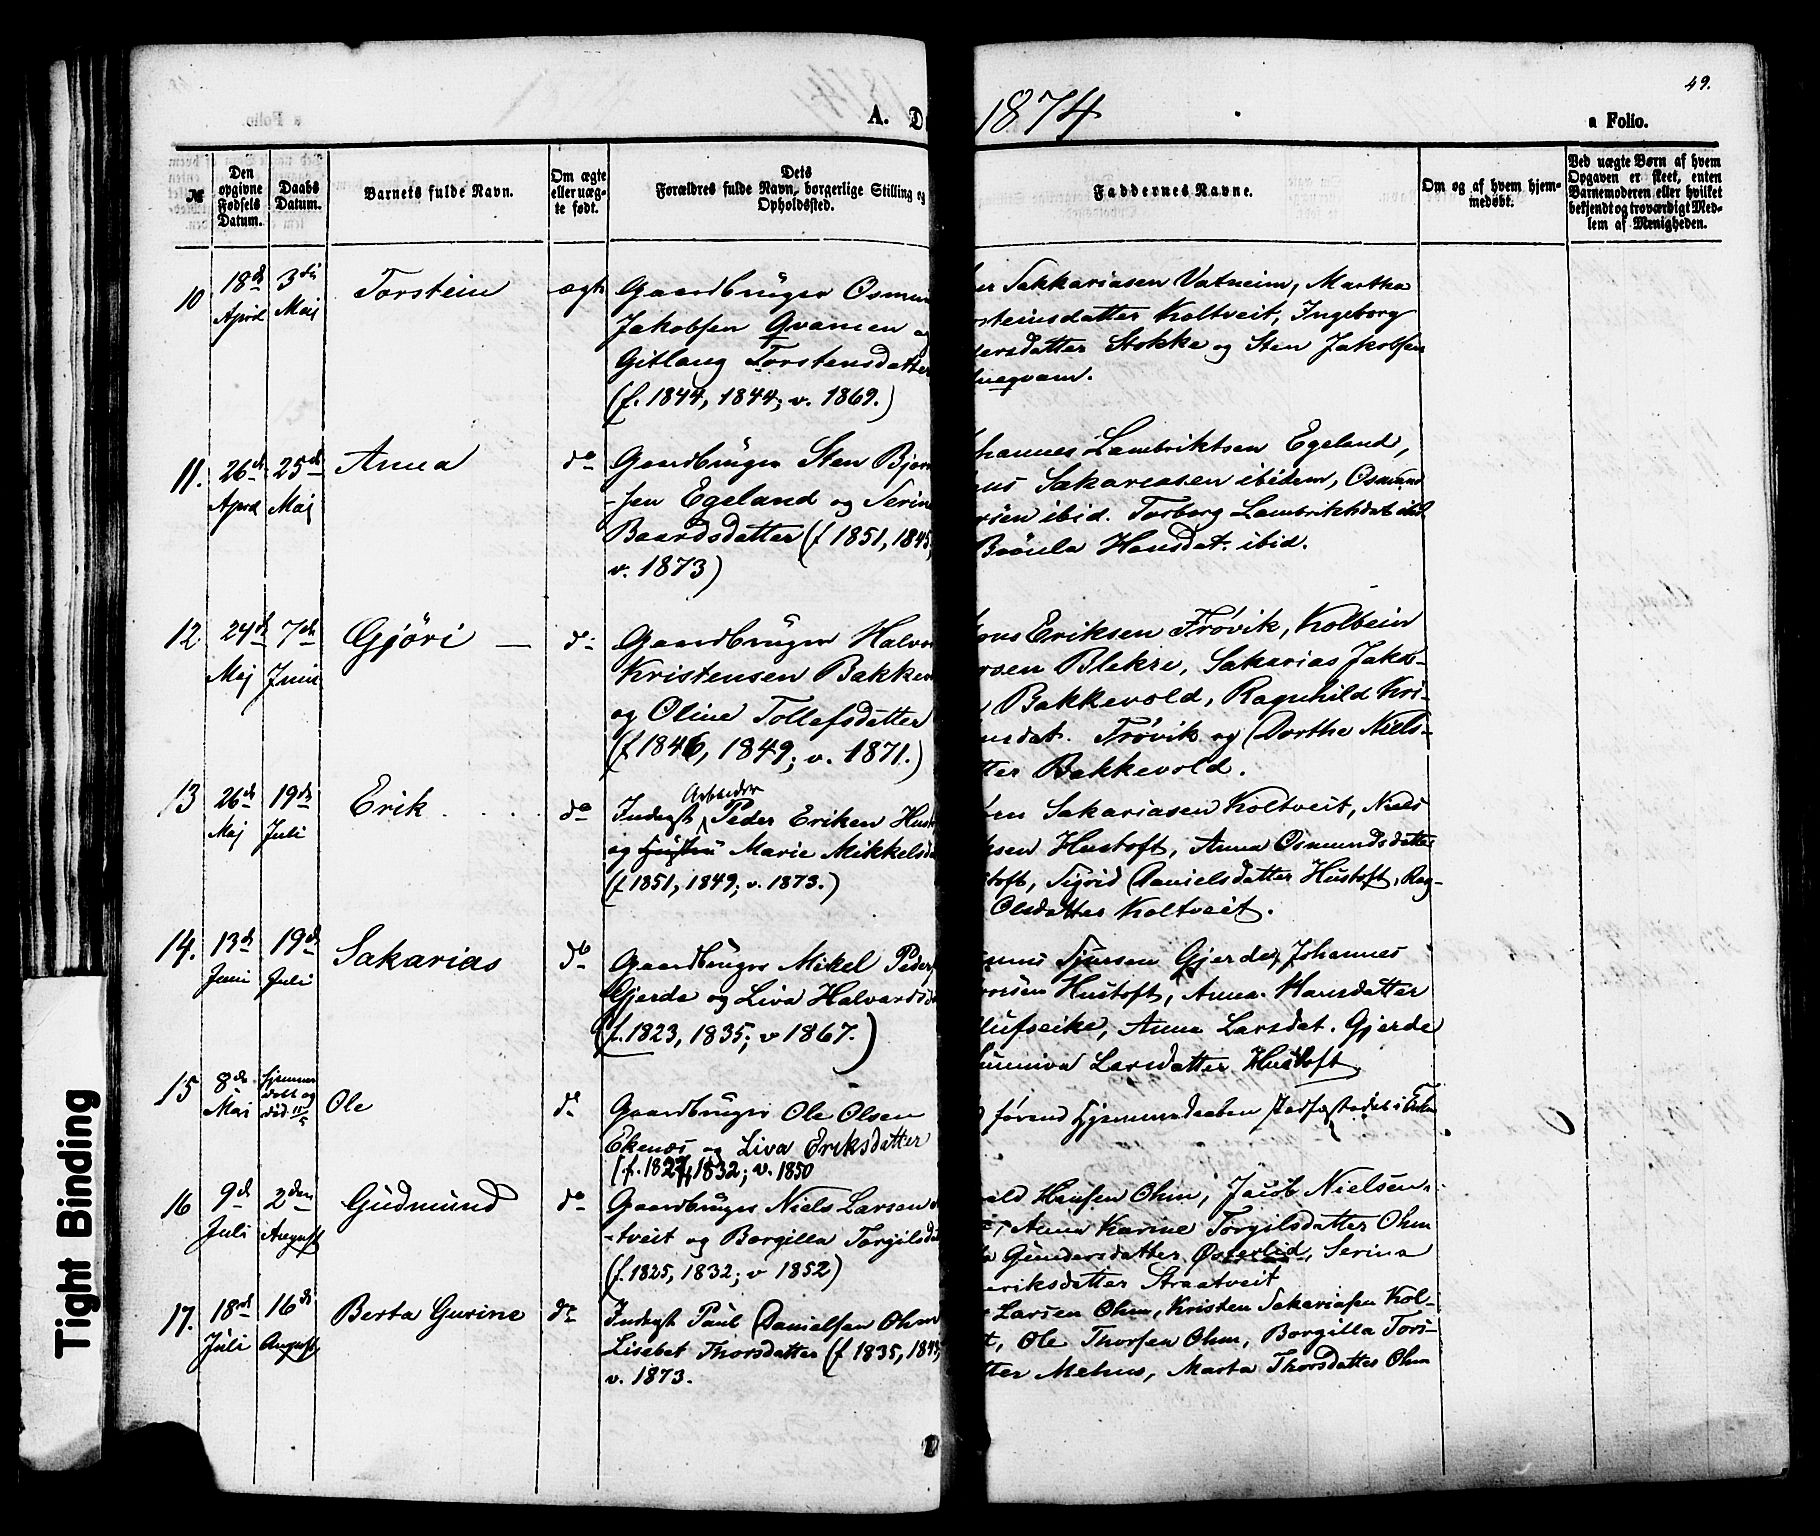 49.
A. D
1874
a Folio.
№
Den opgivne Fødsels Datum.
Daabs Datum.
Barnets fulde Navn.
Om ægte eller uægte født.
Dets Forældres fulde Navn, borgerlige Stilling og Opholdssted.
Faddernes Navne.
Om og af hvem hjemmedøbt.
Ved uægte Børn af hvem Opgaven er skeet, enten Barnemoderen eller hvilket bekjendt og troværdigt Medlem af Menigheden.
10
18de April
3die Maj
Torstein
ægte
Gaardbruger Osmun
Jakobsen Qvamen
Gitlaug Torstensdatter
(f. 1844, 1844; v. 1869.)
Sakkariasen Vatneim, Martha
steinsdatter Koltveit, Ingeborg
dersdatter Stokke og Sten Jakobsen
11.
26de April
25de Maj
Anna
do
Gaardbruger Sten Bjør
-sen Egeland og Serine
Baardsdatter (f 1851, 1845,
v. 1873)
hannes Lambriktsen Egeland,
Sakariasen ibidem, Osmund
sen ibid. Torborg Lambriktsdat ibid
Hansdat. ibid.
12
24de Maj
7de Juni
Gjöri
do
Gaardbruger Halvor
Kristensen Bakkev
og Oline Tollefsdatter
(f 1846, 1849; v. 1871.)
Eriksen Frövik, Kolbein
rsen Blekre, Sakarias Jakob-
Bakkevold, Ragnhild Kri-
nsdat. Frövik og Dorthe Niels-
tter Bakkevold.
13
26de Maj
19de Juli
Erik
do
Arbeider
Inderst Peder Eriken Hust
og Marie Mikkelsd
(f 1851, 1849; v. 1873.)
Sakariasen Koltveit, Niels
ksen Hustoft, Anna Osmundsdatter
stoft, Sigrid Danielsdatter Hustoft, Rag-
Olsdatter Koltveit.
14.
13de Juni
19de Juli
Sakarias
do
Gaardbruger Mikel Peders
Gjerde og Liva Halvardsd
(f. 1823, 1835; v 1867.)
Sjursen Gjerde, Johannes
rsen Hustoft, Anna Hansdatter
ufseike, Anna Larsdat. Gjerde
Larsdatter Hustoft
15
8de Mai
hjemme döbt og död 11/5
Ole
do
Gaardbruger Ole Olsen
Ekenæs og Liva Eriksdatter
(f. 1827, 1832; v. 1850
förend Hjemmedaaben stadfæstedes i
16
9de Juli
2den August
Gudmund
do
Gaardbruger Niels Larsen
-tveit og Borgilla Torgilsd
(f. 1825, 1832; v 1852)
ald Hansen Ohm, Jacob Nielsen
Anna Karine Torgilsdatter Ohm
Gundersdatter Österlid, Serina
eriksdatter Straatveit
17.
18de Juli
16de August
Berta Gurine
do
Inderst Paul Danielsen Ohm
Lisebet Thorsdatter (f 1835, 1845,
v. 1873.
Larsen Ohm, Kristen Sakariasen Kol-
t, Ole Thorsen Ohm, Borgilla Tors-
tter Mehus, Marta Thorsdatter Ohm
Tight Binding